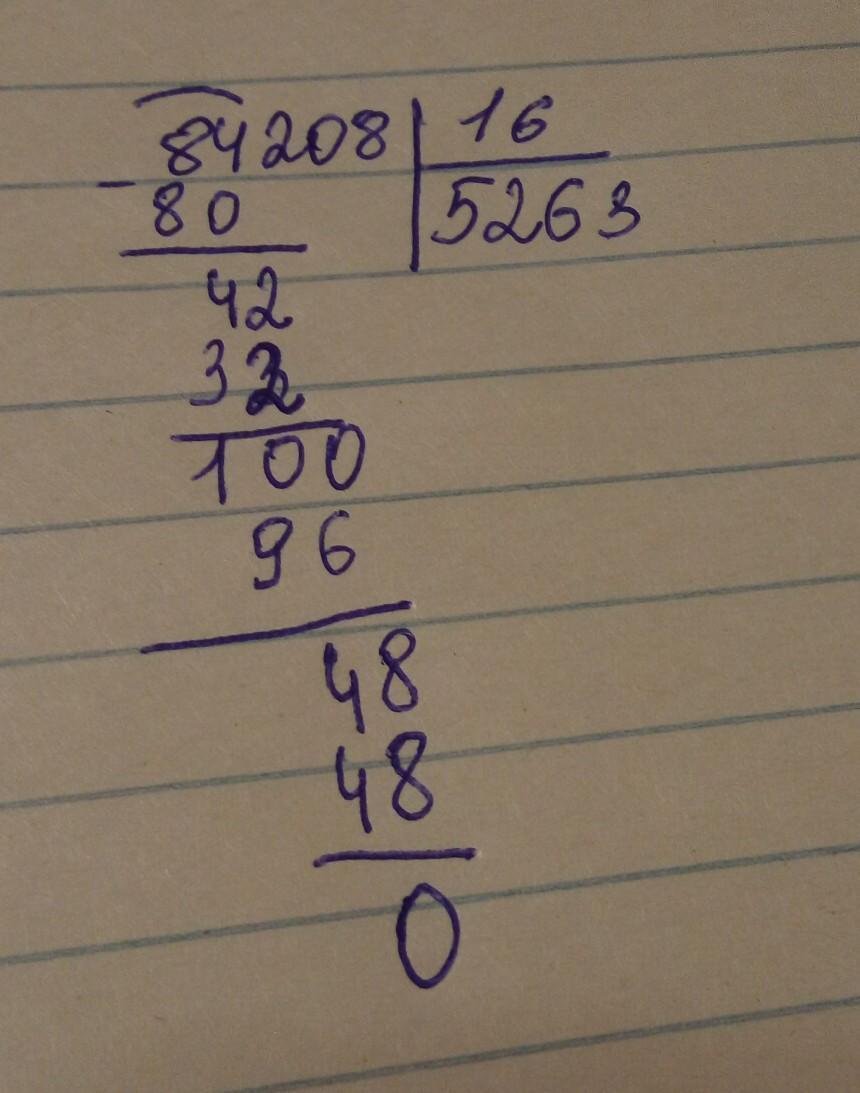 84208 16
- 80 5263
42
32
100
96
48
48
0